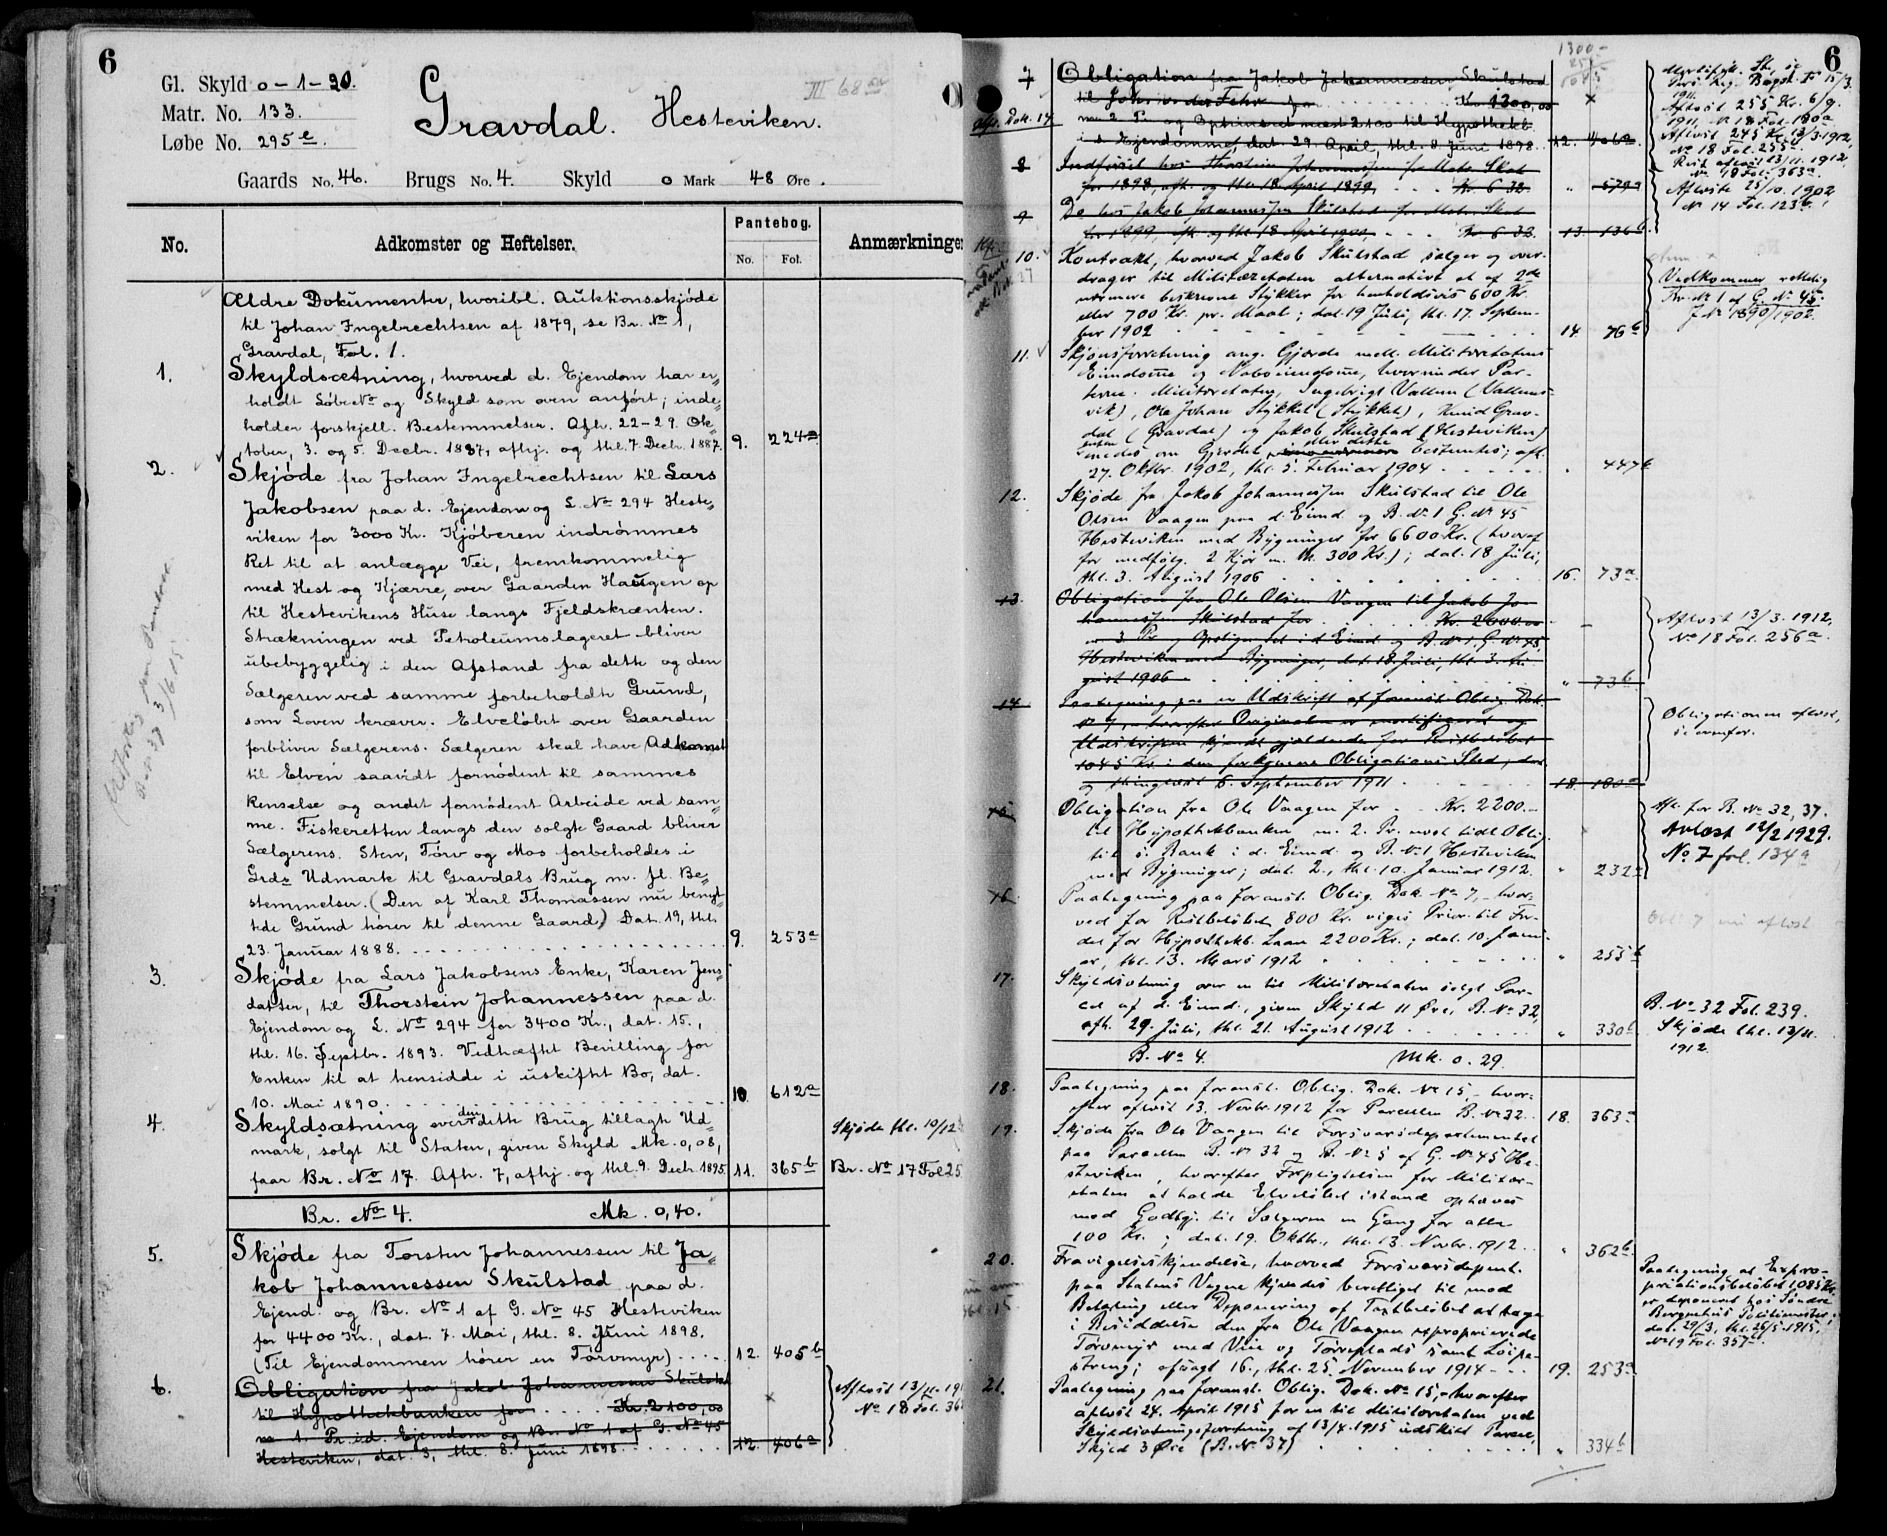 6
Gl. Skyld 0 - 1 - 20.
Matr. No. 133.
Løbe No. 295 e.
Gravdal. Hesteviken.
III 68
Gaards No. 46. Brugs No. 4. Skyld 0 Mark 48 Øre.
No. Adkomster og Heftelser. Pantebog. No. Fol. Anmærkninger
Ældre Dokumenter, hvoribl. Auktionsskjøde
til Johan Ingebrechtsen af 1879, se Br. No 1,
Gravdal, Fol. 1.
1. Skyldsætning, hvorved d. Ejendom har er=
holdt Løbe No og Skyld som oven anført; inde=
holder forskjell. Bestemmelser. Afh. 22-29. Ok=
tober, 3. og 5. Decbr. 1887, afhj. og thl. 7. Decbr. 1887. 9. 224a
2. Skjøde fra Johan Ingebrechtsen til Lars
Jakobsen paa d. Ejendom og L. No 294 Heste=
viken for 3000 Kr. Kjøberen indrømmes
Ret til at anlægge Vei, fremkommelig
med Hest og Kjærre, over Gaarden Haugen op
til Hestevikens Huse langs Fjeldskrænten.
Strækningen ved Petroleumslageret bliver
ubebyggelig i den Afstand fra dette og den
Sælgeren ved samme forbeholdte Grund,
som Loven kræver. Elveløbet over Gaarden
forbliver Sælgerens. Sælgeren skal have Adkomst
til Elven saavidt fornødent til sammes
Renselse og andet fornødent Arbeide ved sam=
me. Fiskeretten langs den solgte Gaard bliver
Sælgerens. Sten, Torv og Mos forbeholdes i
Grds Udmark til Gravdals Brug m. fl. Be=
stemmelser. (Den af Karl Thomassen nu benyt=
tede Grund hører til denne Gaard.) Dat. 19, thl.
23. Januar 1888. 9. 253a
3. Skjøde fra Lars Jakobsens Enke, Karen Jens=
datter, til Thorstein Johannessen paa d.
Ejendom og L. No 294 for 3400 Kr., dat. 15.,
thl. 16. Septbr. 1893. Vedhæftet Bevilling for
Enken til at hensidde i uskiftet Bo, dat.
10. Mai 1890. 10. 612a
4. Skyldsætning over den dette Brug tillagte Ud= Skjøde thl. 10/12
mark, solgt til Staten, given Skyld Mk. 0,08,
faar Br. No 17. Afh. 7, afhj. og thl. 9. Decbr. 1895. 11. 365b Br. No 17 Fol 25
Br. No 4. Mk. 0,40.
5. Skjøde fra Torsten Johannessen til Ja=
kob Johannessen Skulstad paa d.
Ejend. og Br. No 1 af G. No 45 Hesteviken
for 4400 Kr., dat. 7. Mai, thl. 8. Juni 1898.
(Til Ejendommen hører en Torvmyr) 12. 405b
6. Obligation fra Jakob Johannessen Skulstad Afløst 13/11 - 191
til Hypothekbanken for Kr. 2100,00 No 18 Fol. 36
m. 1. Pr. i d. Ejendom og Br. No 1 af G. No 45
Hesteviken, dat. 3, thl. 8. Juni 1898. 12. 406a
6
1300 -
7 Obligation fra Jakob Johannessen Skulstad
Kr. 1300,00
m. 2. Pr. og Oprinnsret næst 2100 til Hypothekb.
i d. Ejendommen dat. 29. April, thl. 8. Juni 1898. 12. 406a
Afløst 255 Kr. 6/9.
1911, No 18 Fol. 180a
Afløst 245 Kr. 13/3 1912,
No 18 Fol. 255
Rest afløst 13/11. 1912,
No 18 Fol. 363a
8 Indførsel hos Thorstein Johannessen for Matr. Skat
for 1898, afh. og thl. 18. April 1899, Kr. 6.32. " 579a
Afløste 25/10. 1902
No 14 Fol. 123b
9 Do hos Jakob Johannessen Skulstad for Matr. Skat
for 1899, afh. og thl. 18 April 1900, Kr. 6.32. 13. 136b
10. Kontrakt, hvorved Jakob Skulstad sælger og over-
drager til Militæretaten alternativt et af 2de
nærmere beskrevne Stykker for henholdsvis 600 Kr.
eller 700 Kr. pr. Maal; dat. 19 Juli, thl. 17. Septem-
ber 1902 14. 76b
Vedkommer rettelig
Br. No 1 af G. No 45.
J. No 1890/1902.
11. Skjønsforretning ang. Gjerde mell. Militæretatens
Eiendomme og Naboeiendomme, hvorunder Par-
terne: Militæretaten, Ingebrigt Vallem (Vallems-
vik), Ole Johan Stykket (Stykket), Knud Grav-
dal (Gravdal) og Jakob Skulstad (Hesteviken)
enedes om Gjerdet, eller dette bestemtes; afh.
27. Oktbr. 1902, thl. 5. Februar 1904 " 447b
12. Skjøde fra Jakob Johannessen Skulstad til Ole
Olsen Vaagen paa d. Eiend. og B. No 1 G. No 45
Hesteviken med Bygninger for 6600 Kr. (hvoraf
for medfølg. 2 Kjør m. m. 300 Kr.); dat. 18 Juli,
thl. 3. August 1906 16. 73a
13. Obligation fra Ole Olsen Vaagen til Jakob Jo-
hannessen Skulstad for Kr. 2600.00
m. 3. Pr. Opstign.ret i d. Eiend. og B. No 1 G. No 45,
Hesteviken med Bygninger, dat. 18. Juli, thl. 3. Au-
gust 1906 " 73b
Afløst 13/3. 1912,
No 18 Fol. 256a.
14. Paategning paa en Udskrift af foranst. Oblig. Dok.
No 7, hvorefter Originalen er mortificeret og
Udskriften kjendt gjældende for Restbeløbet
1045 Kr. i den forkomne Obligations Sted, dat.
og thinglæst 6. September 1911 18. 180a
Obligationen afløst,
se ovenfor.
15. Obligation fra Ole Vaagen for Kr. 2200.-
til Hypothekbanken m. 2. Pr. næst tidl. Oblig.
til s. Bank i d. Eiend. og B. No 1 Hesteviken
med Bygninger; dat. 2., thl. 10. Januar 1912. " 232a
Afl. for B. No 32, 37.
Avløst 12/2 1929.
No 7 fol. 134a
16. Paategning paa foranst. Oblig. Dok. No 7, - hvor-
ved for Restbeløbet 800 Kr. viges Prior. til For-
del for Hypothekb. Laan 2200 Kr.; dat. 10. Janu-
ar, thl. 13. Mars 1912 " 255b
Obl. 7 nu afløst
17. Skyldsætning over en til Militæretaten solgt Par-
cel af d. Eiend., given Skyld 11 Øre, B. No 32,
afh. 29. Juli, thl. 21. August 1912 " 330b
B. No 32 Fol. 239.
Skjøde thl. 13/11.
1912.
B. No 4. Mk. 0.29.
18. Paategning paa foranst. Oblig. Dok. No 15, - hvor-
efter afløst 13. Novbr. 1912 for Parcellen B. No 32. 18. 363a
19. Skjøde fra Ole Vaagen til Forsvarsdepartementet
paa Parcellen B. No 32 og B. No 5 af G. No 45 He-
steviken, hvorefter Forpligtelsen for Militær-
etaten at holde Elveløbet istand ophæves
mod Godtgj. til Sælgeren en Gang for alle
100 Kr.; dat. 19. Oktbr., thl. 13. Novbr. 1912 " 362b
20. Fravigelseskjendelse, hvorved Forsvarsdepmt.
paa Statens Vegne kjendes berettiget til mod
Betaling eller Deponering af Taxtbeløbet at tage
i Besiddelse den fra Ole Vaagen exproprierede
Torvmyr med Veie og Tørreplads samt Løipe-
streng; afsagt 16., thl. 25. November 1914 19. 253a
Paategning at Expro-
priationsbeløbet 1,085 Kr.
er deponeret hos Søndre
Bergenhus Politimester
dat. 29/3, thl. 26/5 1915,
No 19 Fol. 357
21. Paategning paa foranst. Oblig. Dok. No 15, - hvorefter
afløst 24. April 1915 for en til Militæretaten ved
Skyldsætningsforretning af 13/4 1915 udskilt Parcel,
Skyld 3 Øre (B. No 37) " 334b